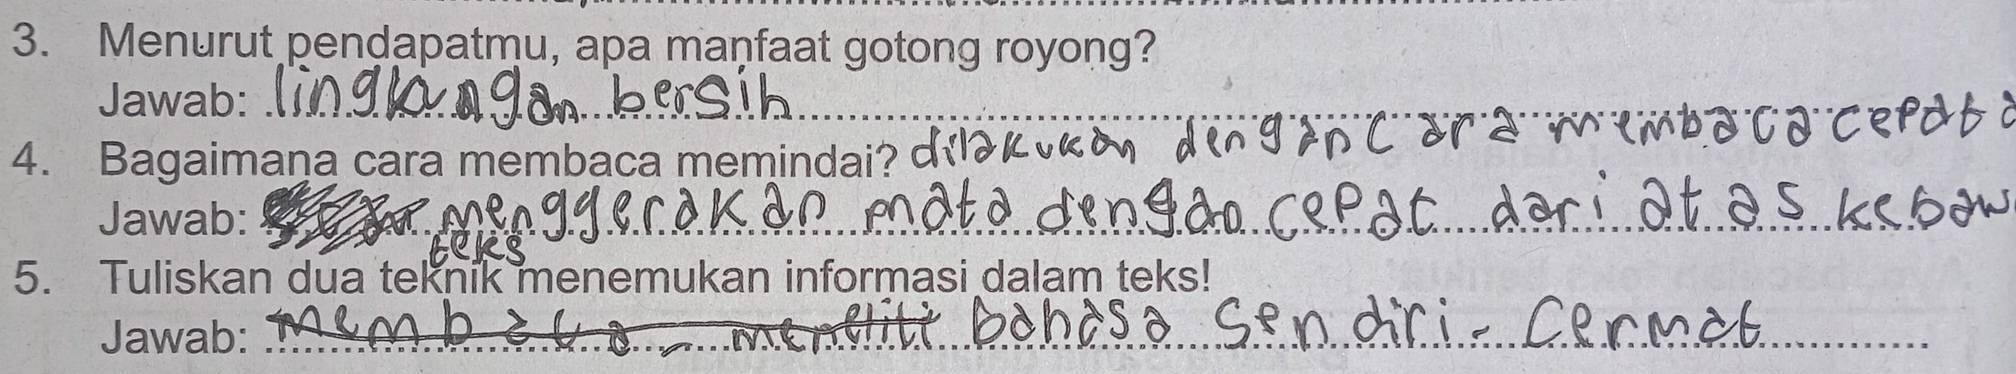 3. Menurut pendapatmu, apa manfaat gotong royong?
Jawab: lingkangan bersih
4. Bagaimana cara membaca memindai? dilakukan dengan cara membaca cepat
Jawab: menggerakan mata dengan cepat dari atas kebaw
teks
5. Tuliskan dua teknik menemukan informasi dalam teks!
Jawab: membaca - meneliti bahasa sendiri - cermat